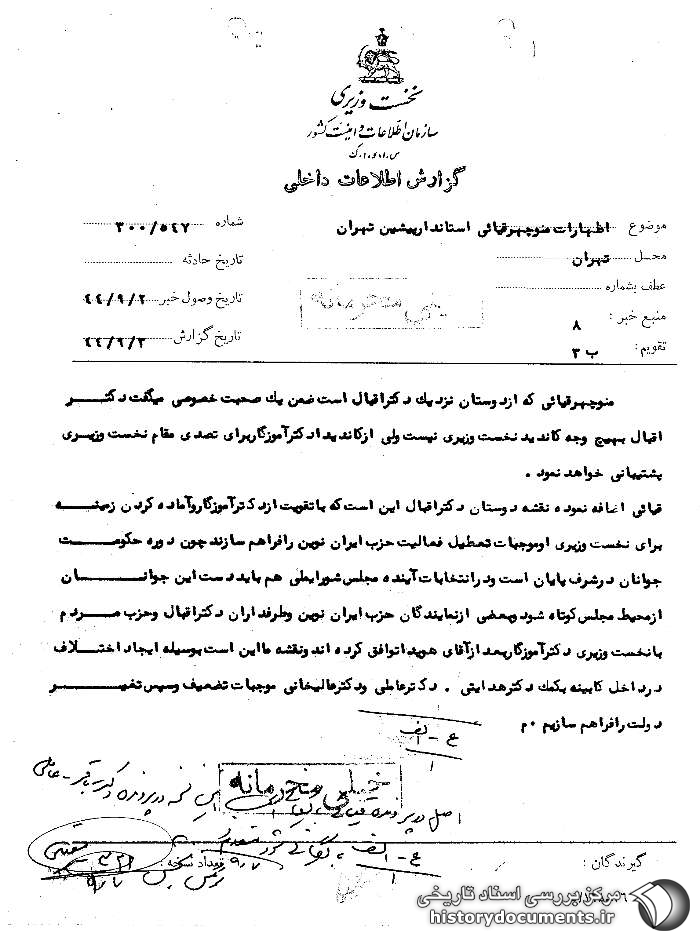 نخست وزیری
سازمان اطلاعات و امنیت کشور
س.ا.و.ا.ک
گزارش اطلاعات داخلی
موضوع اظهارات منوچهر قیائی استاندار پیشین تهران
شماره ۳۰۰/۵۴۷
محل تهران
تاریخ حادثه
عطف بشماره
تاریخ وصول خبر ۴۴/۹/۲
منبع خبر : ۸
تاریخ گزارش ۴۴/۹/۳
تقویم : ب ۳
خیلی محرمانه
منوچهر قیائی که از دوستان نزدیک دکتر اقبال است ضمن یک صحبت خصوصی میگفت دکتر
اقبال بهیچ وجه کاندید نخست وزیری نیست ولی از کاندیدا دکتر آموزگار برای تصدی مقام نخست وزیری
پشتیبانی خواهد نمود .
قیائی اضافه نموده نقشه دوستان دکتر اقبال این است که با تقویت از دکتر آموزگار و آماده کردن زمینه
برای نخست وزیری او موجبات تعطیل فعالیت حزب ایران نوین را فراهم سازند چون دوره حکومت
جوانان در شرف پایان است و در انتخابات آینده مجلس شورایملی هم باید دست این جوانان
از محیط مجلس کوتاه شود و بعضی از نمایندگان حزب ایران نوین و طرفداران دکتر اقبال و حزب مردم
با نخست وزیری دکتر آموزگار بعد از آقای هویدا توافق کرده اند و نقشه ما این است بوسیله ایجاد اختلاف
در داخل کابینه بکمک دکتر هدایتی . دکتر عاملی و دکتر عالیخانی موجبات تضعیف و سپس تغییر
دولت را فراهم سازیم . م
ع - الف
۱
این نسخه در پرونده دکتر باقر - عاملی
خیلی محرمانه
اصل در پرونده
ع - الف
۱
گیرندگان :
تعداد نسخه :
مرکز بررسی اسناد تاریخی
historydocuments.ir